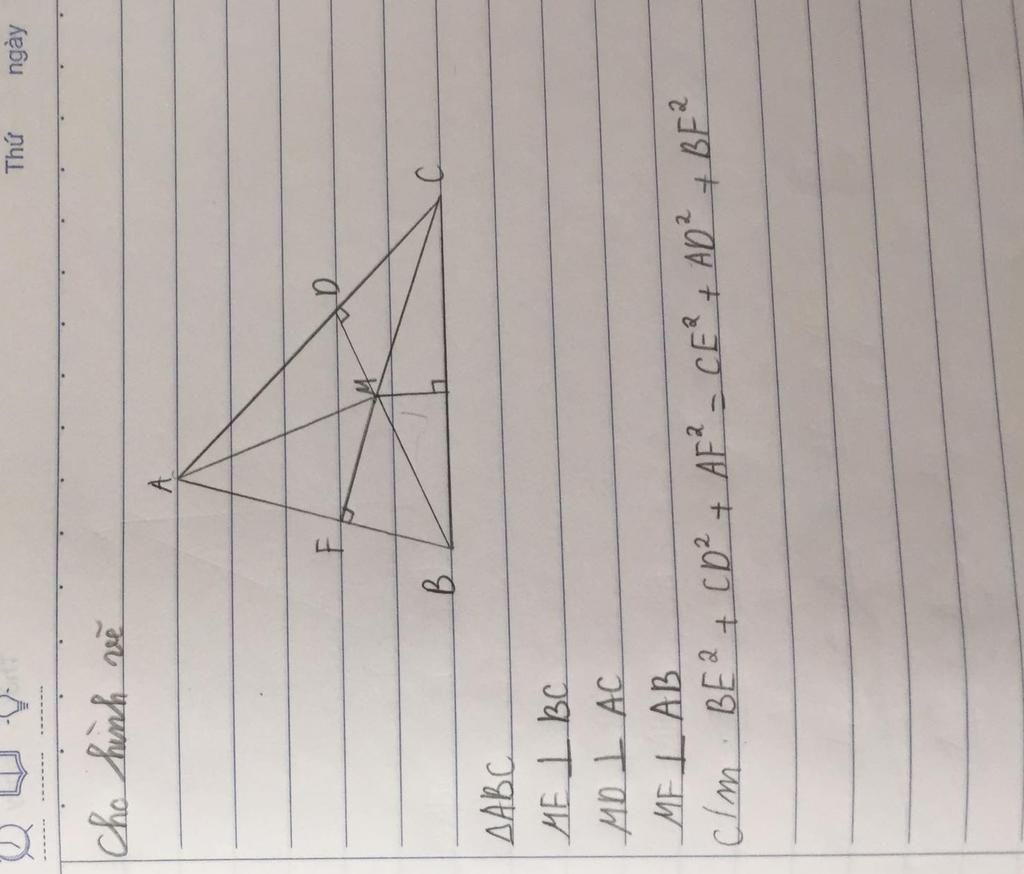 Thứ ngày
Cho hình vẽ
A
F
D
M
B
C
ΔABC
ME ⊥ BC
MD ⊥ AC
MF ⊥ AB
C/m: BE² + CD² + AF² = CE² + AD² + BF²